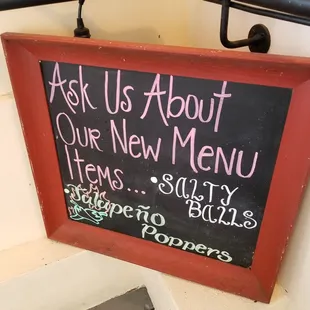 Ask Us About
Our New Menu
Items...
• Salty
Balls
• Jalapeño
Poppers